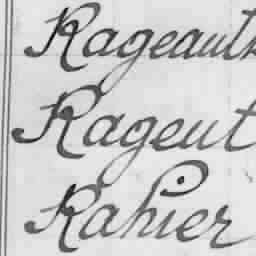 Rageault
Rageut
Rahier